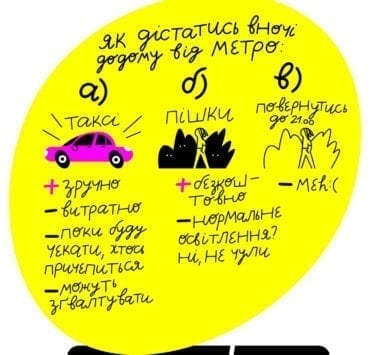 як дістатись вночі
додому від метро:
а)
таксі
+ зручно
— витратно
— поки буду
чекати, хтось
причепиться
— можуть
зґвалтувати
б)
пішки
+ безкош-
товно
— нормальне
освітлення?
ні, не чули
в)
повернутись
до 21.00
— мех:(